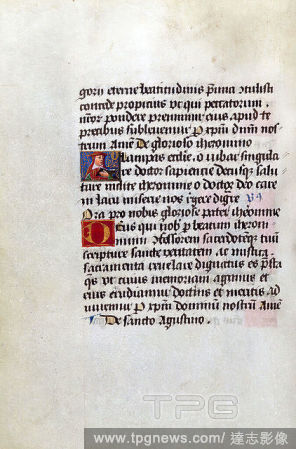 gorii eterne beatitudinis premia contulisti
concede propicius ut qui peccatorum
nostrorum pondere premimur eius apud te
precibus sublevemur P xpm dnm nos
trum Amen De glorioso iheronimo
lampas ecclesie o iubar singula
re doctor sapiencie
ture milite iheronime o doctor deo care
in lacu miserie nos egere digne
Ora pro nobis gloriose pater iheronime
Deus qui nobis per beatum iheroni
mum confessorem sacerdotemque tuum
scripture sancte veritatem ac mistica
sacramenta revelare dignatus es presta
qs ut cuius memoriam agimus et
eius erudiamur doctrinis et meritis ad
iuvemur P xpm dominum nostrum Amen
De sancto Agustino
TPG
www.tpgnews.com / 達志影像